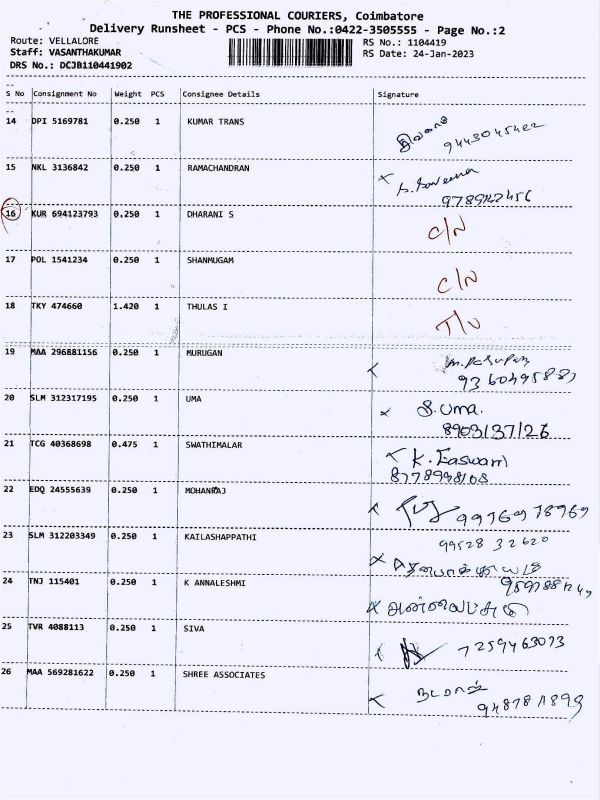 THE PROFESSIONAL COURIERS, Coimbatore
Delivery Runsheet - PCS - Phone No.:0422-3505555 - Page No.:2
Route: VELLALORE
RS No.: 1104419
Staff: VASANTHAKUMAR
RS Date: 24-Jan-2023
DRS No.: DCJB110441902
S No Consignment No Weight PCS Consignee Details Signature
14 DPI 5169781 0.250 1 KUMAR TRANS
9443045422
15 NKL 3136842 0.250 1 RAMACHANDRAN
16 KUR 694123793 0.250 1 DHARANI S C/N
17 POL 1541234 0.250 1 SHANMUGAM C/N
18 TKY 474660 1.420 1 THULAS I T/U
19 MAA 296881156 0.250 1 MURUGAN
20 SLM 312317195 0.250 1 UMA S. Uma.
8903137126
21 TCG 40368698 0.475 1 SWATHIMALAR K. Easwari
22 EDQ 24555639 0.250 1 MOHANRAJ 9976978969
23 SLM 312203349 0.250 1 KAILASHAPPATHI 99528 32620
24 TNJ 115401 0.250 1 K ANNALESHMI
25 TVR 4088113 0.250 1 SIVA 7259463073
26 MAA 569281622 0.250 1 SHREE ASSOCIATES